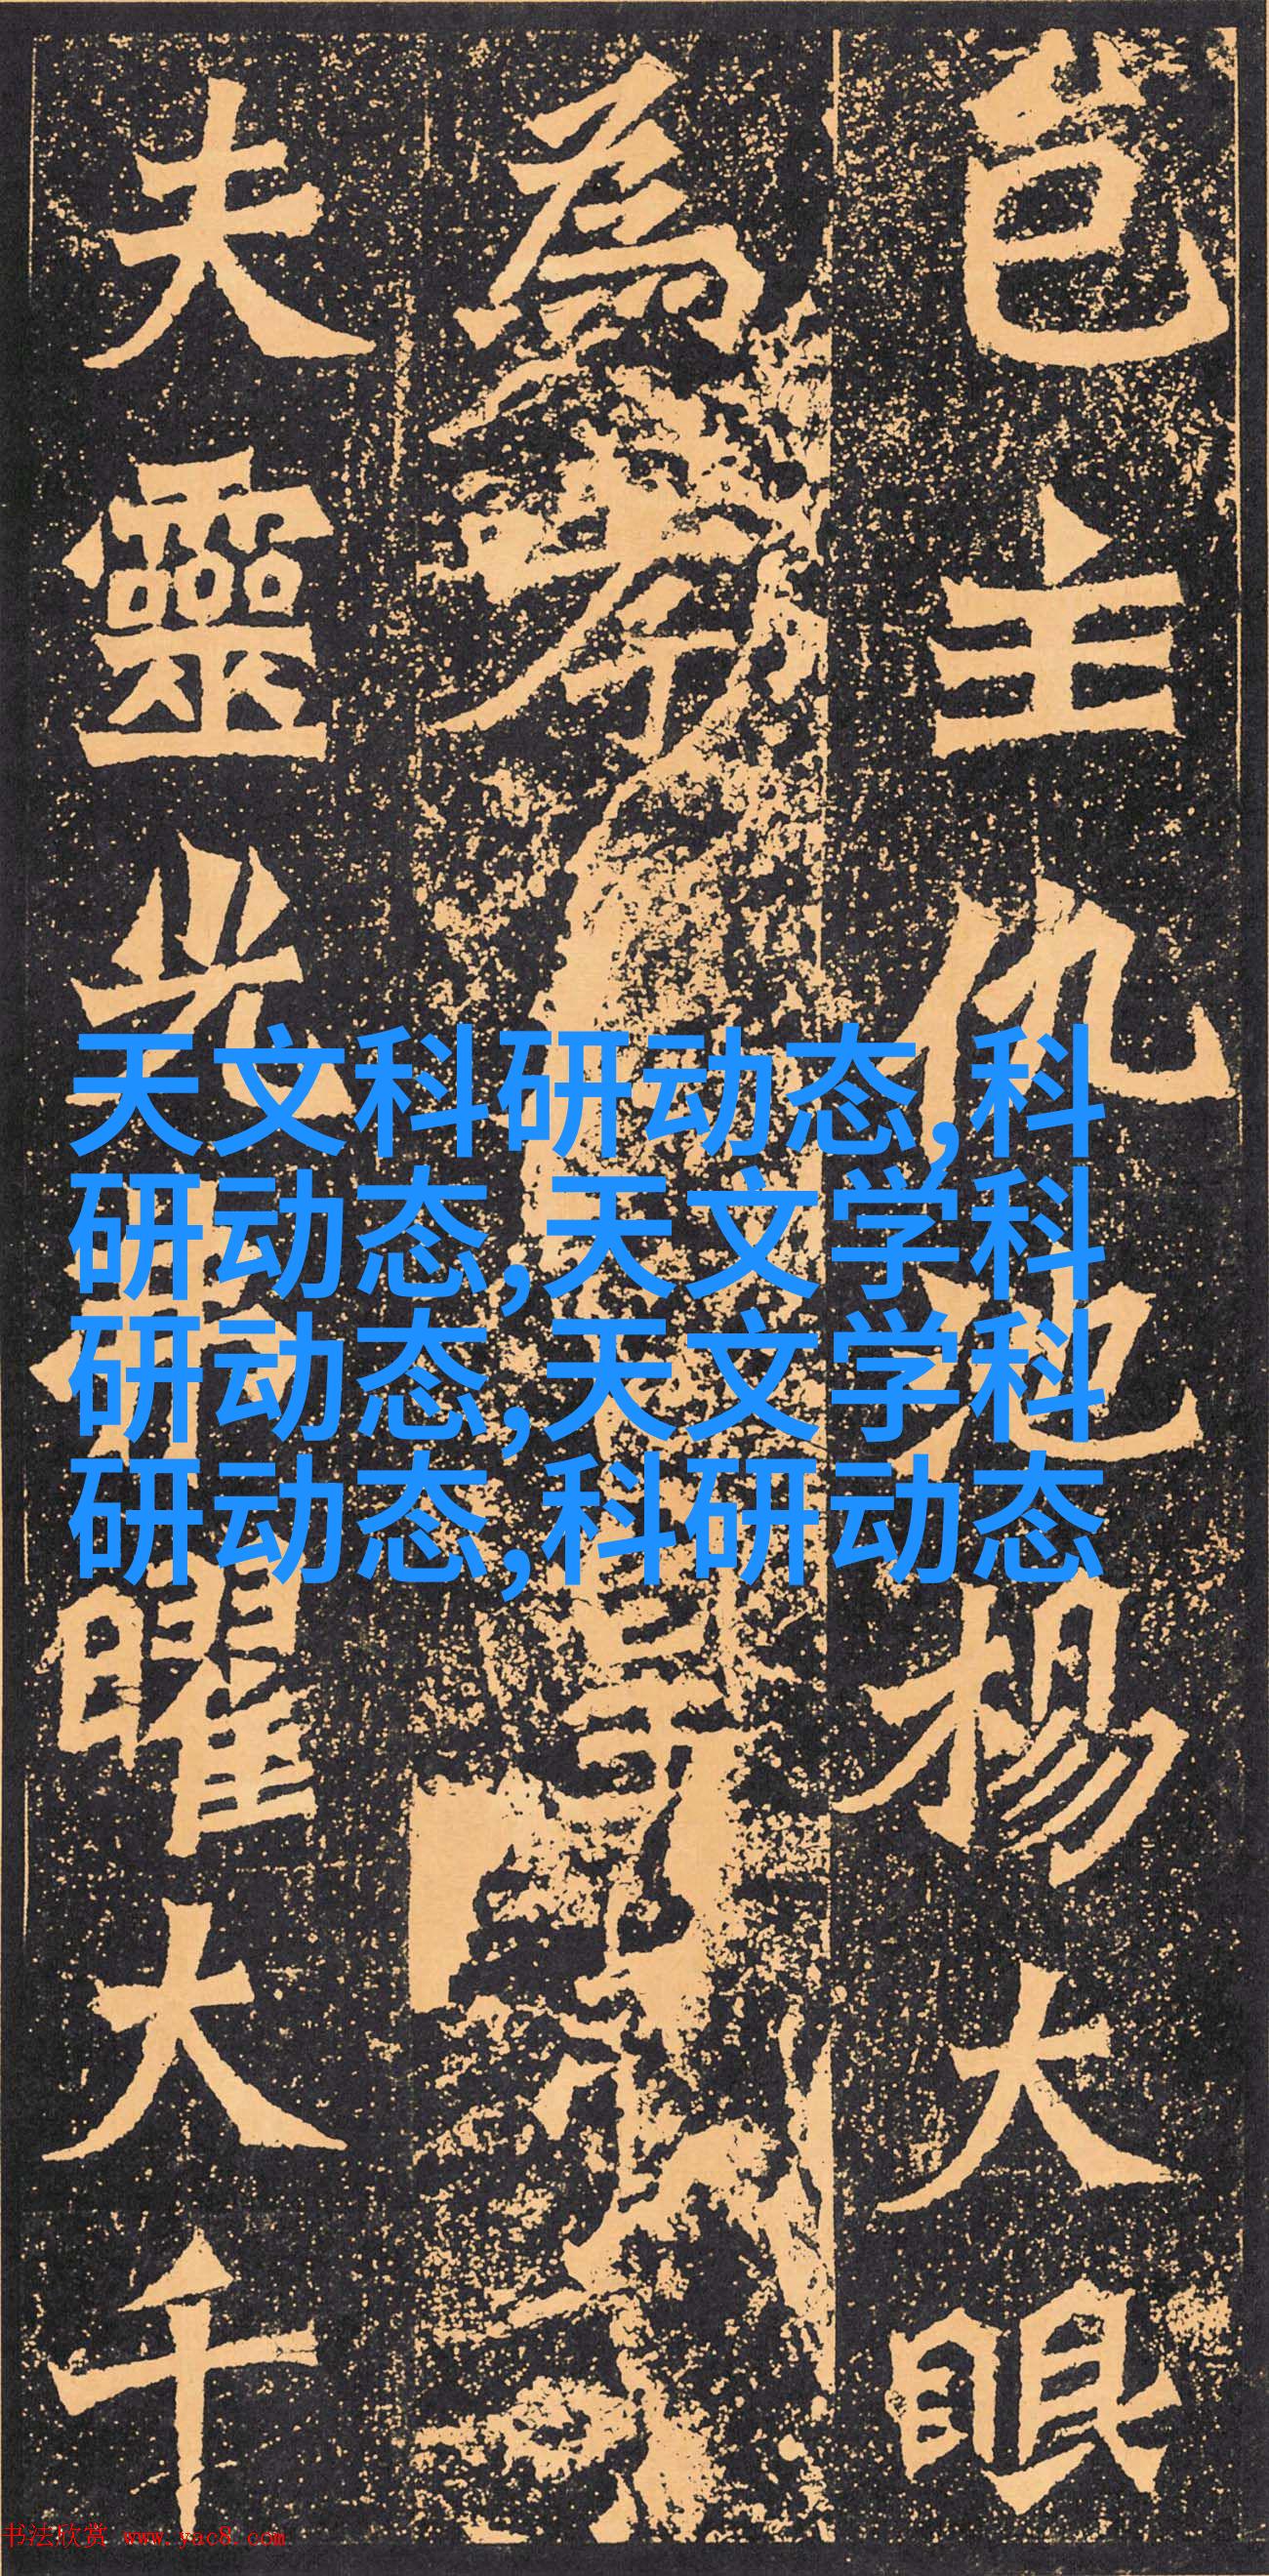 邑主仇池楊大眼
為孝
夫靈光弗曜大千
天文科研动态,科
研动态,天文学科
研动态,天文学科
研动态,科研动态
书法欣赏 www.yac8.com